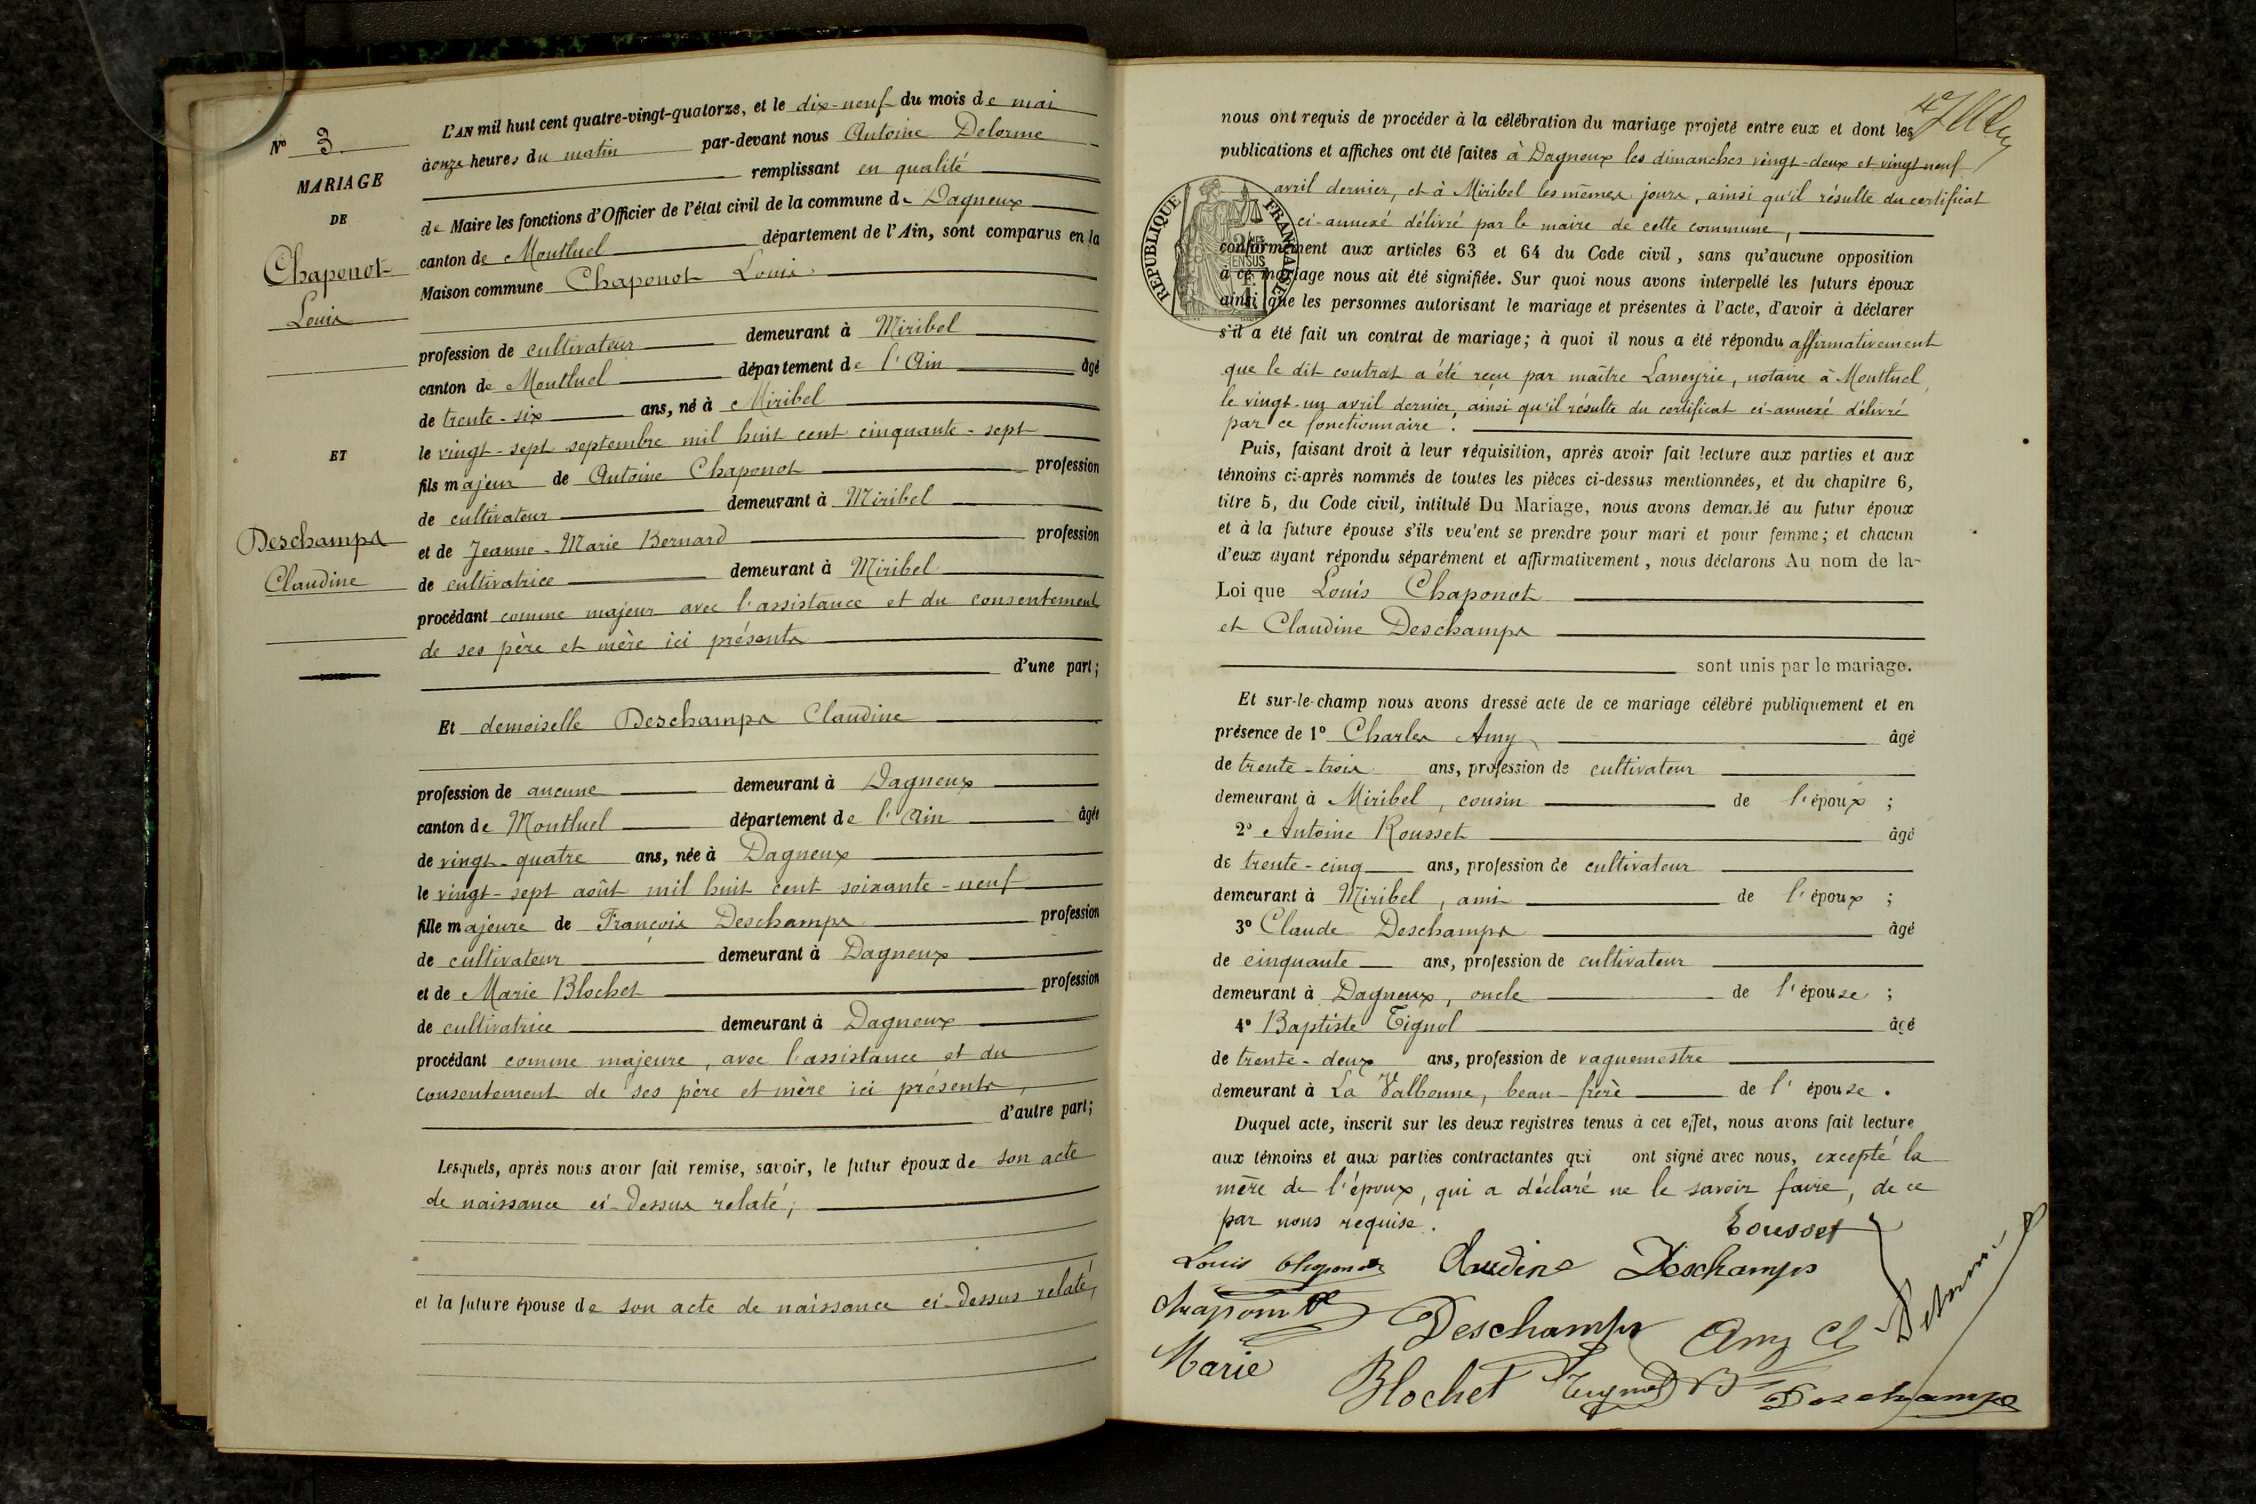 N° 3
MARIAGE
DE
Chaponot
Louis
ET
Deschamps
Claudine
L'AN mil huit cent quatre-vingt-quatorze, et le dix-neuf du mois de mai
à onze heures du matin par-devant nous Antoine Delorme
remplissant en qualité
de Maire les fonctions d'Officier de l'état civil de la commune de Dagneux
canton de Montluel département de l'Ain, sont comparus en la
Maison commune Chaponot Louis
profession de cultivateur demeurant à Miribel
canton de Montluel département de l'Ain âgé
de trente-six ans, né à Miribel
le vingt-sept septembre mil huit cent cinquante-sept
fils majeur de Antoine Chaponot profession
de cultivateur demeurant à Miribel
et de Jeanne-Marie Bernard profession
de cultivatrice demeurant à Miribel
procédant comme majeur avec l'assistance et du consentement
de ses père et mère ici présents
d'une part;
Et demoiselle Deschamps Claudine
profession de aucune demeurant à Dagneux
canton de Montluel département de l'Ain âgée
de vingt-quatre ans, née à Dagneux
le vingt-sept août mil huit cent soixante-neuf
fille majeure de François Deschamps profession
de cultivateur demeurant à Dagneux
et de Marie Blochet profession
de cultivatrice demeurant à Dagneux
procédant comme majeure, avec l'assistance et du
consentement de ses père et mère ici présents,
d'autre part;
Lesquels, après nous avoir fait remise, savoir, le futur époux de son acte
de naissance ci-dessus relaté;
et la future épouse de son acte de naissance ci-dessus relaté,
nous ont requis de procéder à la célébration du mariage projeté entre eux et dont les
publications et affiches ont été faites à Dagneux les dimanches vingt-deux et vingt neuf
avril dernier, et à Miribel les mêmes jours, ainsi qu'il résulte du certificat
ci-annexé délivré par le maire de cette commune,
RÉPUBLIQUE FRANÇAISE
conformément aux articles 63 et 64 du Code civil, sans qu'aucune opposition
à ce mariage nous ait été signifiée. Sur quoi nous avons interpellé les futurs époux
ainsi que les personnes autorisant le mariage et présentes à l'acte, d'avoir à déclarer
s'il a été fait un contrat de mariage; à quoi il nous a été répondu affirmativement
que le dit contrat a été reçu par maître Laneyrie, notaire à Montluel,
le vingt-un avril dernier, ainsi qu'il résulte du certificat ci-annexé délivré
par ce fonctionnaire.
Puis, faisant droit à leur réquisition, après avoir fait lecture aux parties et aux
témoins ci-après nommés de toutes les pièces ci-dessus mentionnées, et du chapitre 6,
titre 5, du Code civil, intitulé Du Mariage, nous avons demandé au futur époux
et à la future épouse s'ils veulent se prendre pour mari et pour femme; et chacun
d'eux ayant répondu séparément et affirmativement, nous déclarons Au nom de la
Loi que Louis Chaponot
et Claudine Deschamps
sont unis par le mariage.
Et sur-le-champ nous avons dressé acte de ce mariage célébré publiquement et en
présence de 1° Charles Amy âgé
de trente-trois ans, profession de cultivateur
demeurant à Miribel, cousin de l'époux;
2° Antoine Rousset âgé
de trente-cinq ans, profession de cultivateur
demeurant à Miribel, ami de l'époux;
3° Claude Deschamps âgé
de cinquante ans, profession de cultivateur
demeurant à Dagneux, oncle de l'épouse;
4° Baptiste Tignol âgé
de trente-deux ans, profession de vaguemestre
demeurant à La Valbonne, beau-frère de l'épouse.
Duquel acte, inscrit sur les deux registres tenus à cet effet, nous avons fait lecture
aux témoins et aux parties contractantes qui ont signé avec nous, excepté la
mère de l'époux, qui a déclaré ne le savoir faire, de ce
par nous requise.
Rousset
Louis Chaponot Claudine Deschamps
Chaponot Deschamps Amy Cl Delorme
Marie Blochet Tignol B Deschamps